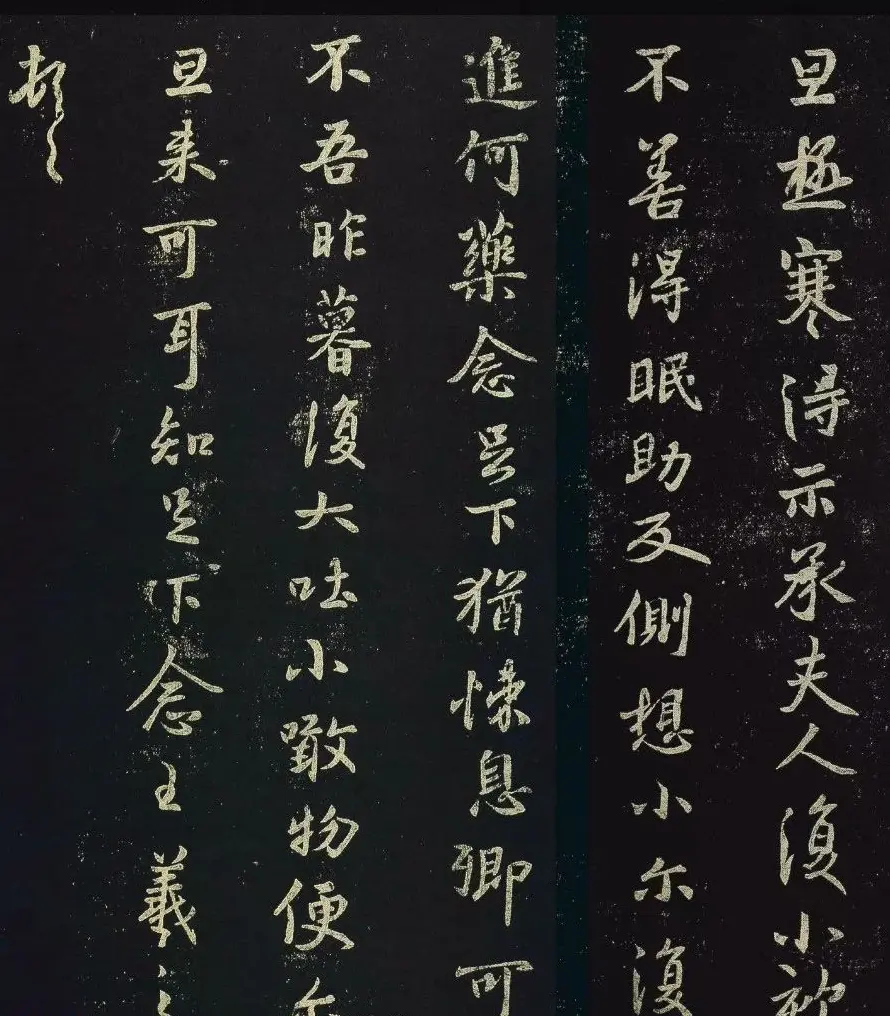 旦極寒得示承夫人復小
不善得眠助反側想小尒復
進何藥念足下猶悚息卿可
不吾昨暮復大吐小噉物便尒
旦来可耳知足下念王羲之
頓首